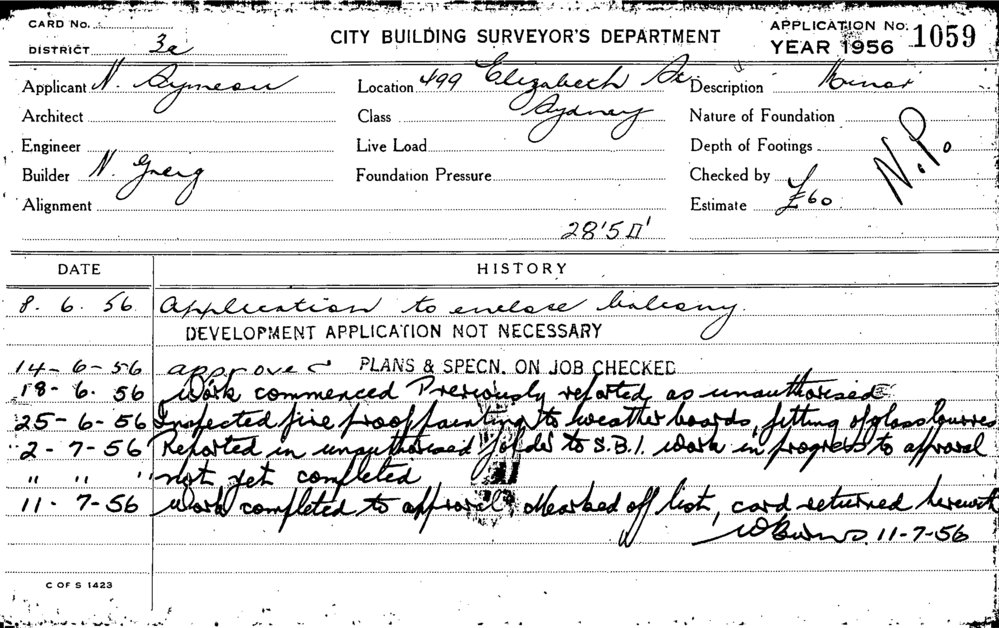 CARD No.
DISTRICT 3a
CITY BUILDING SURVEYOR'S DEPARTMENT
APPLICATION No. 1059
YEAR 1956
Applicant N.
Location 499 Elizabeth St
Description Minor
Architect
Class Sydney
Nature of Foundation
Engineer
Live Load
Depth of Footings
N.P.
Builder N.
Foundation Pressure
Checked by
Alignment
Estimate £60
28'5□'
DATE
HISTORY
8. 6. 56 Application to enclose balcony.
DEVELOPMENT APPLICATION NOT NECESSARY
14-6-56 approved PLANS & SPECN. ON JOB CHECKED
18-6.56 Work commenced Previously reported as unauthorised
25-6-56 Inspected fire proof painting to weather boards, fitting of glass louvres
2-7-56 Reported in unauthorised folder to S.B.I. work in progress to approval
" " " not yet completed
11-7-56 Work completed to approval. Marked off list, card returned herewith
11-7-56
C OF S 1423